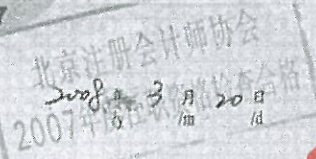 北京注册会计师协会
2008年 3月 20日
/y /m /d
2007年度任职资格检查合格